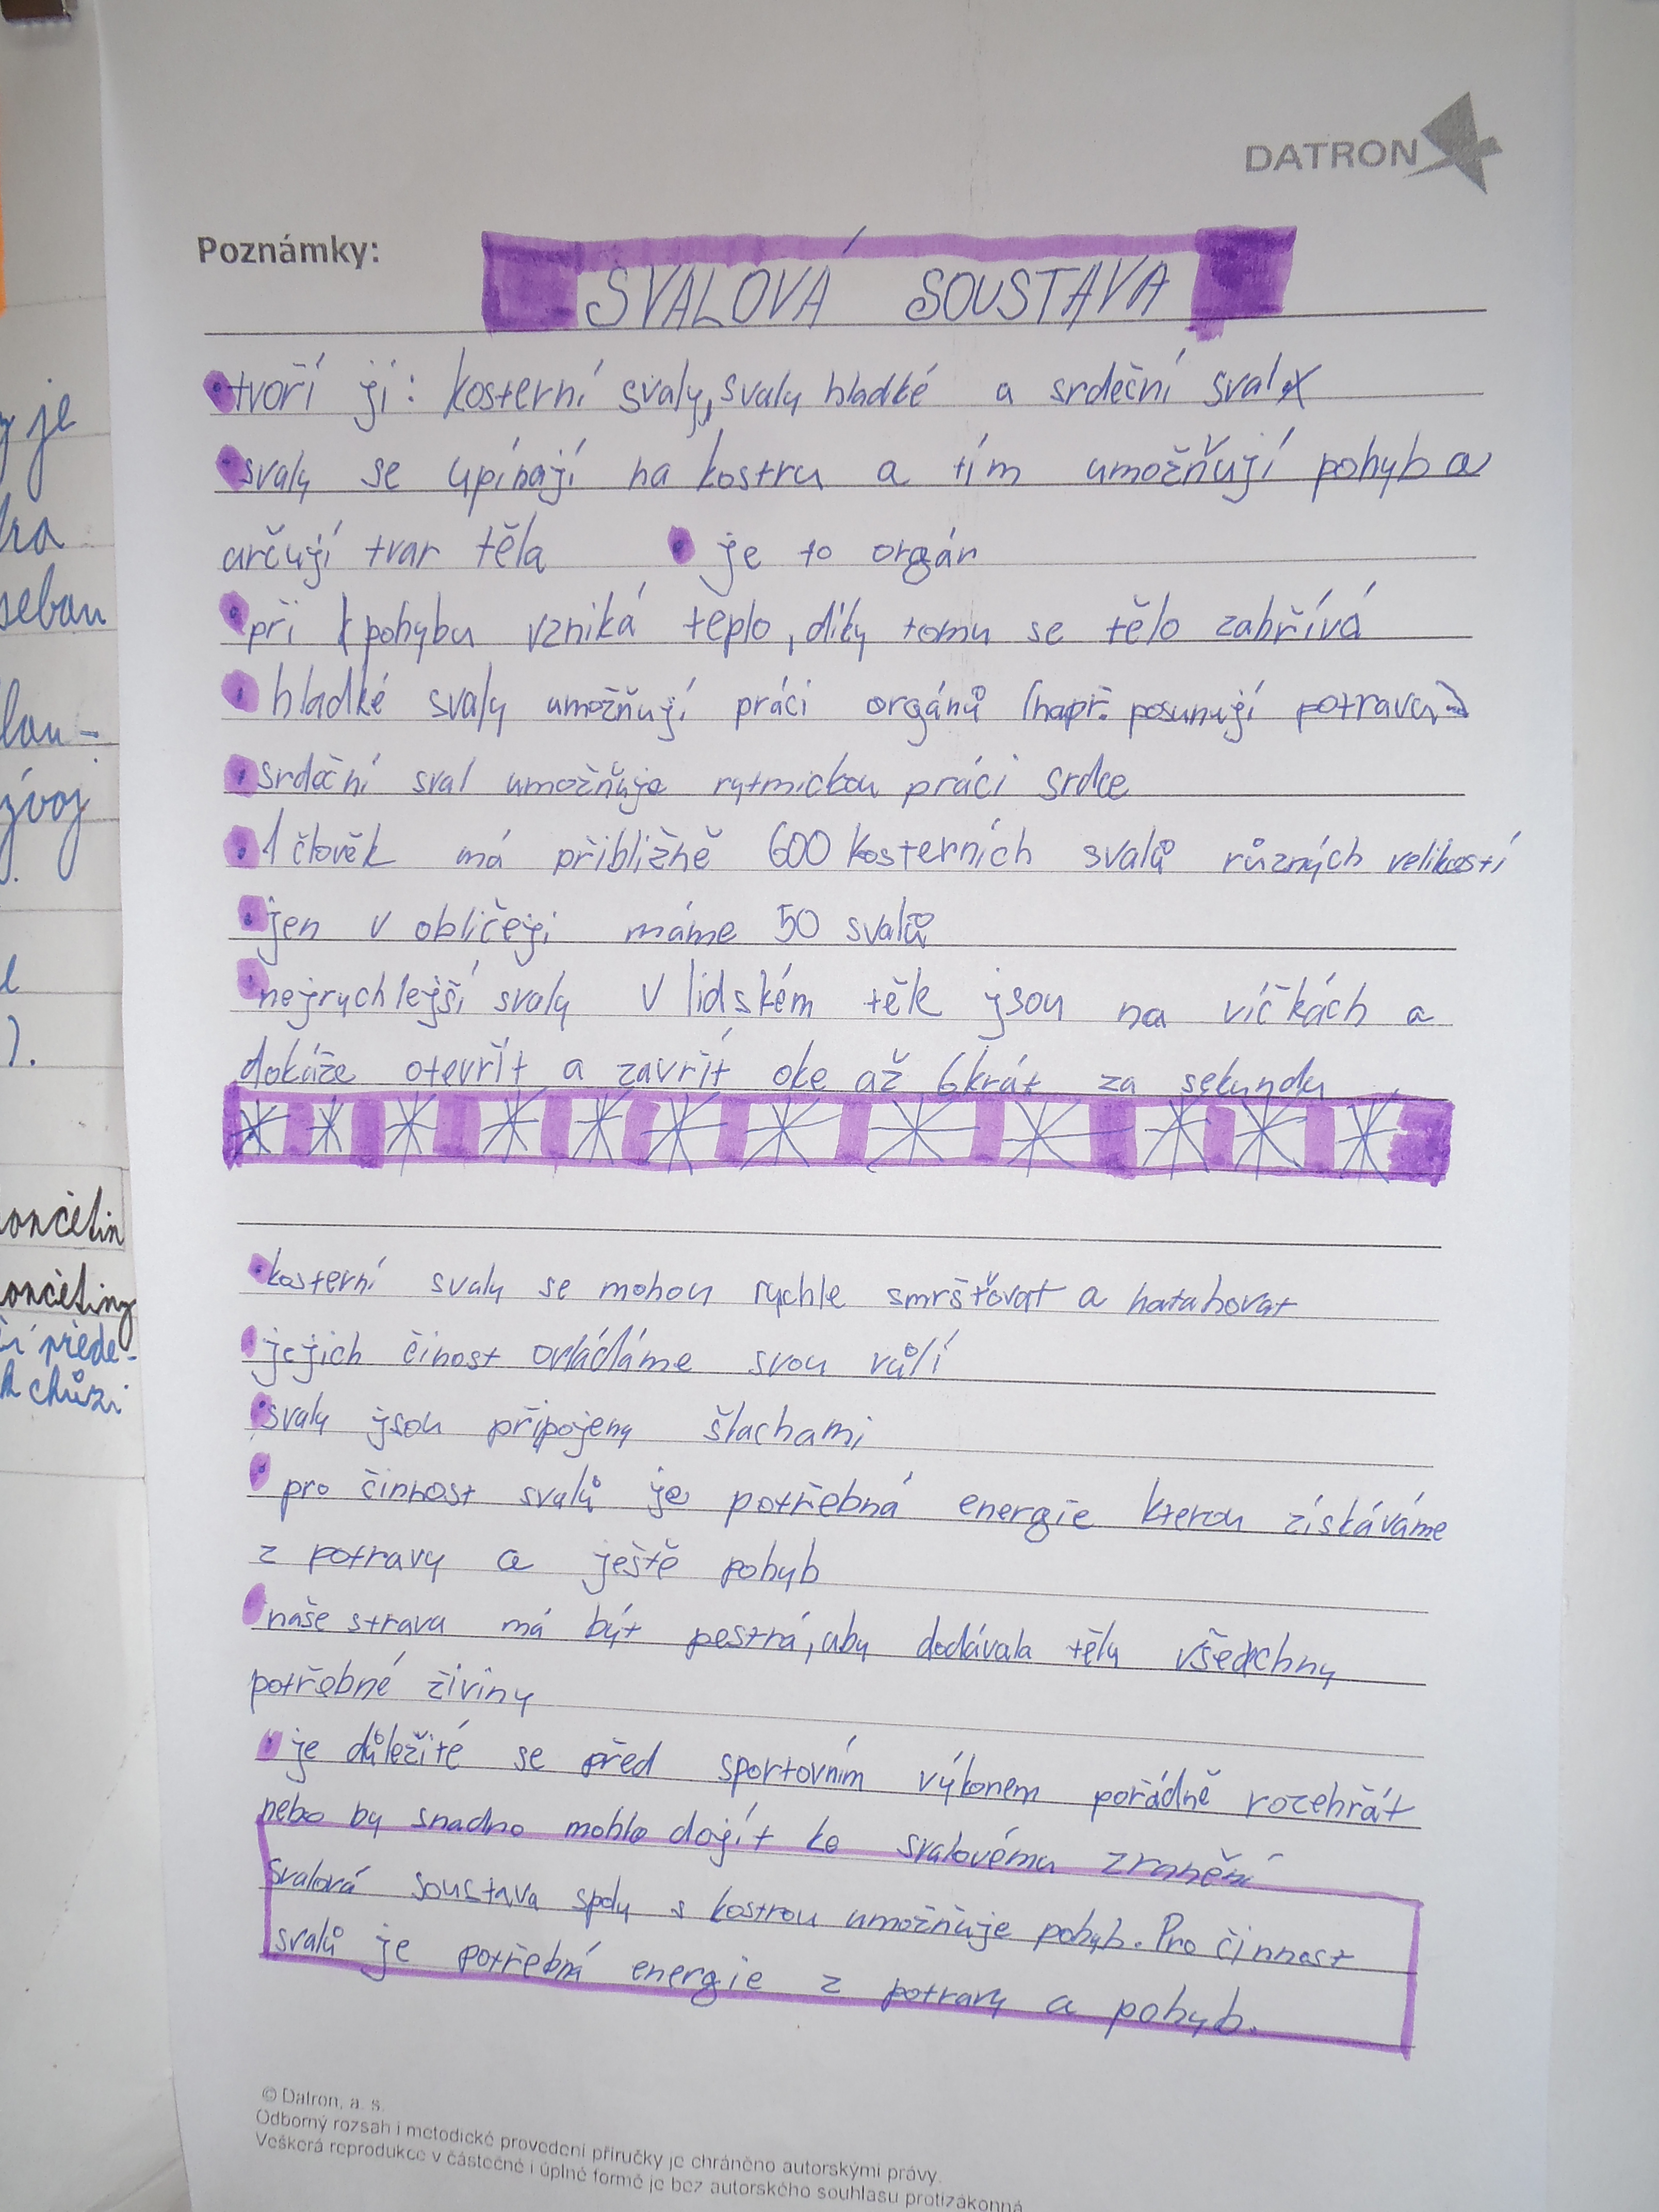 DATRON
Poznámky:
SVALOVÁ SOUSTAVA
• tvoří ji: kosterní svaly, svaly hladké a srdeční sval
• svaly se upínají na kostru a tím umožňují pohyb a
určují tvar těla • je to orgán
• při pohybu vzniká teplo, díky tomu se tělo zahřívá
• hladké svaly umožňují práci orgánů (např. posunují potravu)
• srdeční sval umožňuje rytmickou práci srdce
• 1 člověk má přibližně 600 kosterních svalů různých velikostí
• jen v obličeji máme 50 svalů
• nejrychlejší svaly v lidském těle jsou na víčkách a
dokáže otevřít a zavřít oko až 6krát za sekundu
• kosterní svaly se mohou rychle smršťovat a natahovat
• jejich činost ovládáme svou vůlí
• svaly jsou připojeny šlachami
• pro činnost svalů je potřebná energie kterou získáváme
z potravy a ještě pohyb
• naše strava má být pestrá, aby dodávala tělu všechny
potřebné živiny
• je důležité se před sportovním výkonem pořádně rozehřát
nebo by snadno mohlo dojít ke svalovému zranění
Svalová soustava spolu s kostrou umožňuje pohyb. Pro činnost
svalů je potřebná energie z potravy a pohyb.
© Datron, a. s.
Odborný rozsah i metodické provedení příručky je chráněno autorskými právy.
Veškerá reprodukce v částečné i úplné formě je bez autorského souhlasu protizákonná
je
sebou
lou-
ývoj
).
končetin
končetiny
přede-
k chůzi